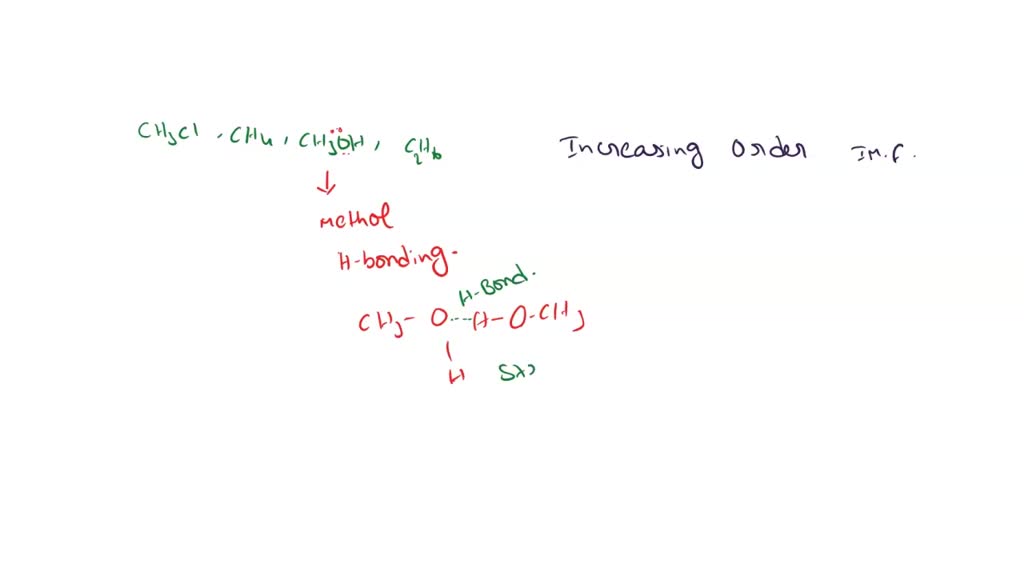 CH3Cl , CH4 , CH3ÖH , C2H6
Increasing Order IM.F.
↓
methol
H-bonding.
H-Bond.
CH3- O---H-O-CH3
|
H